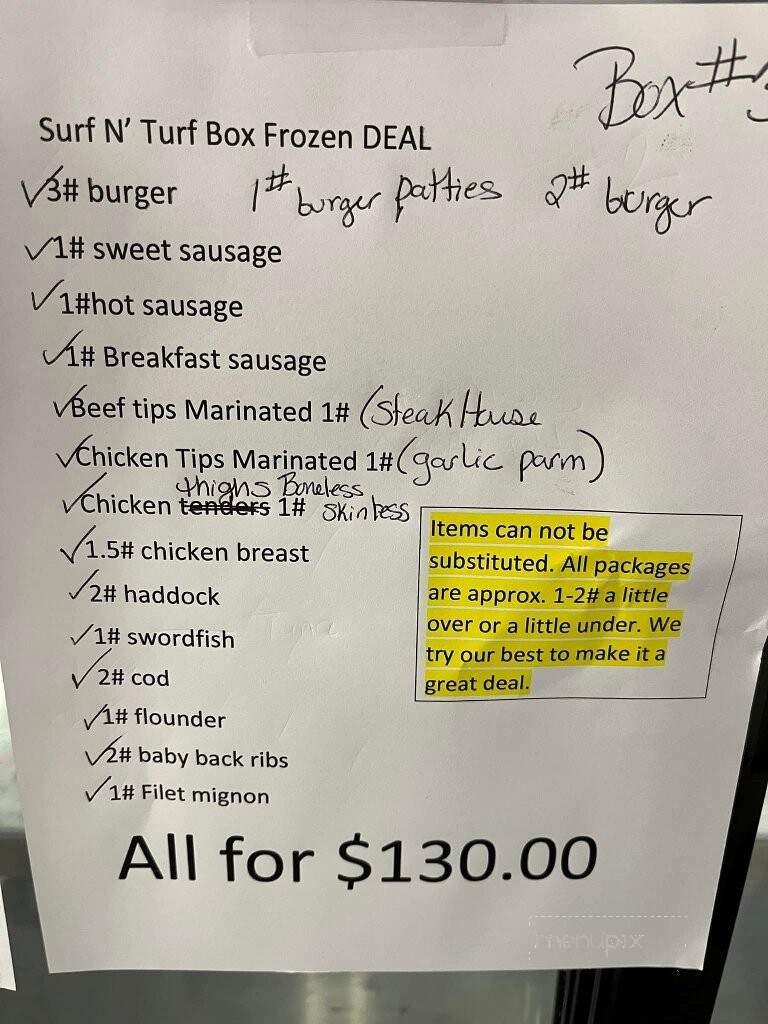 Box #
Surf N' Turf Box Frozen DEAL
✓3# burger 1# burger patties 2# burger
✓1# sweet sausage
✓1#hot sausage
✓1# Breakfast sausage
✓Beef tips Marinated 1# (Steak House
✓Chicken Tips Marinated 1# (garlic parm)
thighs Boneless
✓Chicken tenders 1# skinless
✓1.5# chicken breast
✓2# haddock
✓1# swordfish
✓2# cod
✓1# flounder
✓2# baby back ribs
✓1# Filet mignon
Items can not be
substituted. All packages
are approx. 1-2# a little
over or a little under. We
try our best to make it a
great deal.
All for $130.00
menupix